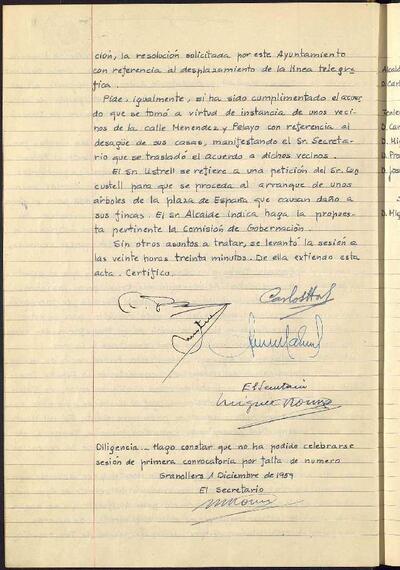 ción, la resolución solicitada por este Ayuntamiento
con referencia al desplazamiento de la línea telegrá
fica.
Pide, igualmente, si ha sido cumplimentado el acuer
do que se tomó a virtud de instancia de unos veci
nos de la calle Menendez y Pelayo con referencia al
desagüe de sus casas, manifestando el Sr. Secreta-
rio que se trasladó el acuerdo a dichos vecinos.
El Sr. Ustrell se refiere a una petición del Sr.
custell para que se proceda al arranque de unos
árboles de la plaza de España que causan daño a
sus fincas. El Sr. Alcalde indica haga la propues-
ta pertinente la Comisión de Gobernación.
Sin otros asuntos a tratar, se levantó la sesión a
las veinte horas treinta minutos. De ella extiendo esta
acta. Certifico.
Carlos
El Secretario
Miguel
Diligencia.- Hago constar que no ha podido celebrarse
sesión de primera convocatoria por falta de número
Granollers 1 Diciembre de 1959
El Secretario
Alcald
D. Car
D. Ca
D. Mi
D. Pro
D. Jos
D. Mig